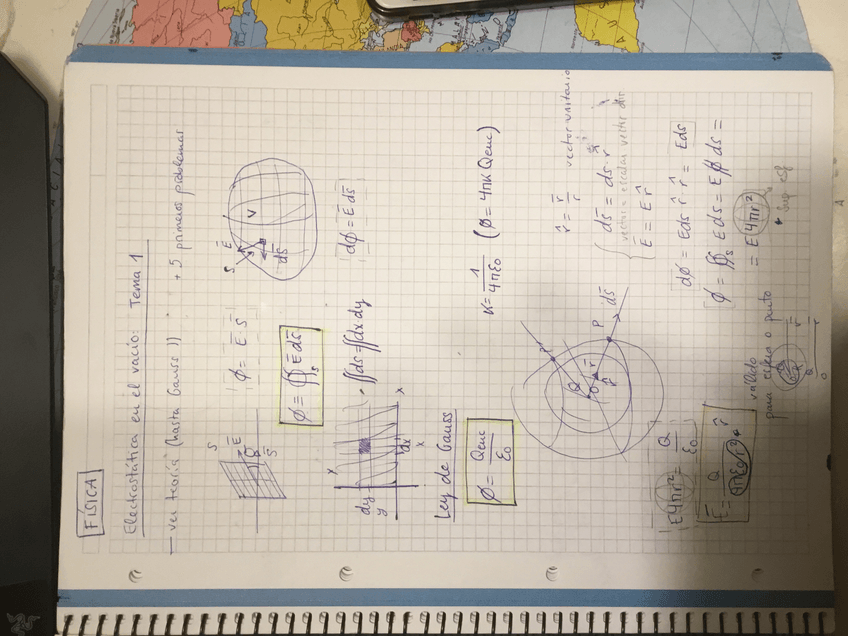 FÍSICA
Electrostática en el vacío: Tema 1
— ver teoría (hasta Gauss)) + 5 primeros problemas
S
E
S
ϕ = E · S
S
E
V
dS
ϕ = ∯s E dS
dϕ = E dS
x
dy
y
dx
x
x
∬ds = ∬dx dy
Ley de Gauss
ϕ = Qenc / ε0
K = 1 / 4πε0 (ϕ = 4πK Qenc)
P'
Q
O
r
r̂
P
dS
r̂ = r / r vector unitario
dS = ds · r̂
vector = escalar vector
E = E r̂
dϕ = E ds r̂ · r̂ = E ds
ϕ = ∯s E ds = E ∯ ds =
= E 4πr²
E 4πr² = Q / ε0
E = Q / 4πε0 r² · r̂
válido
para esfera o punto